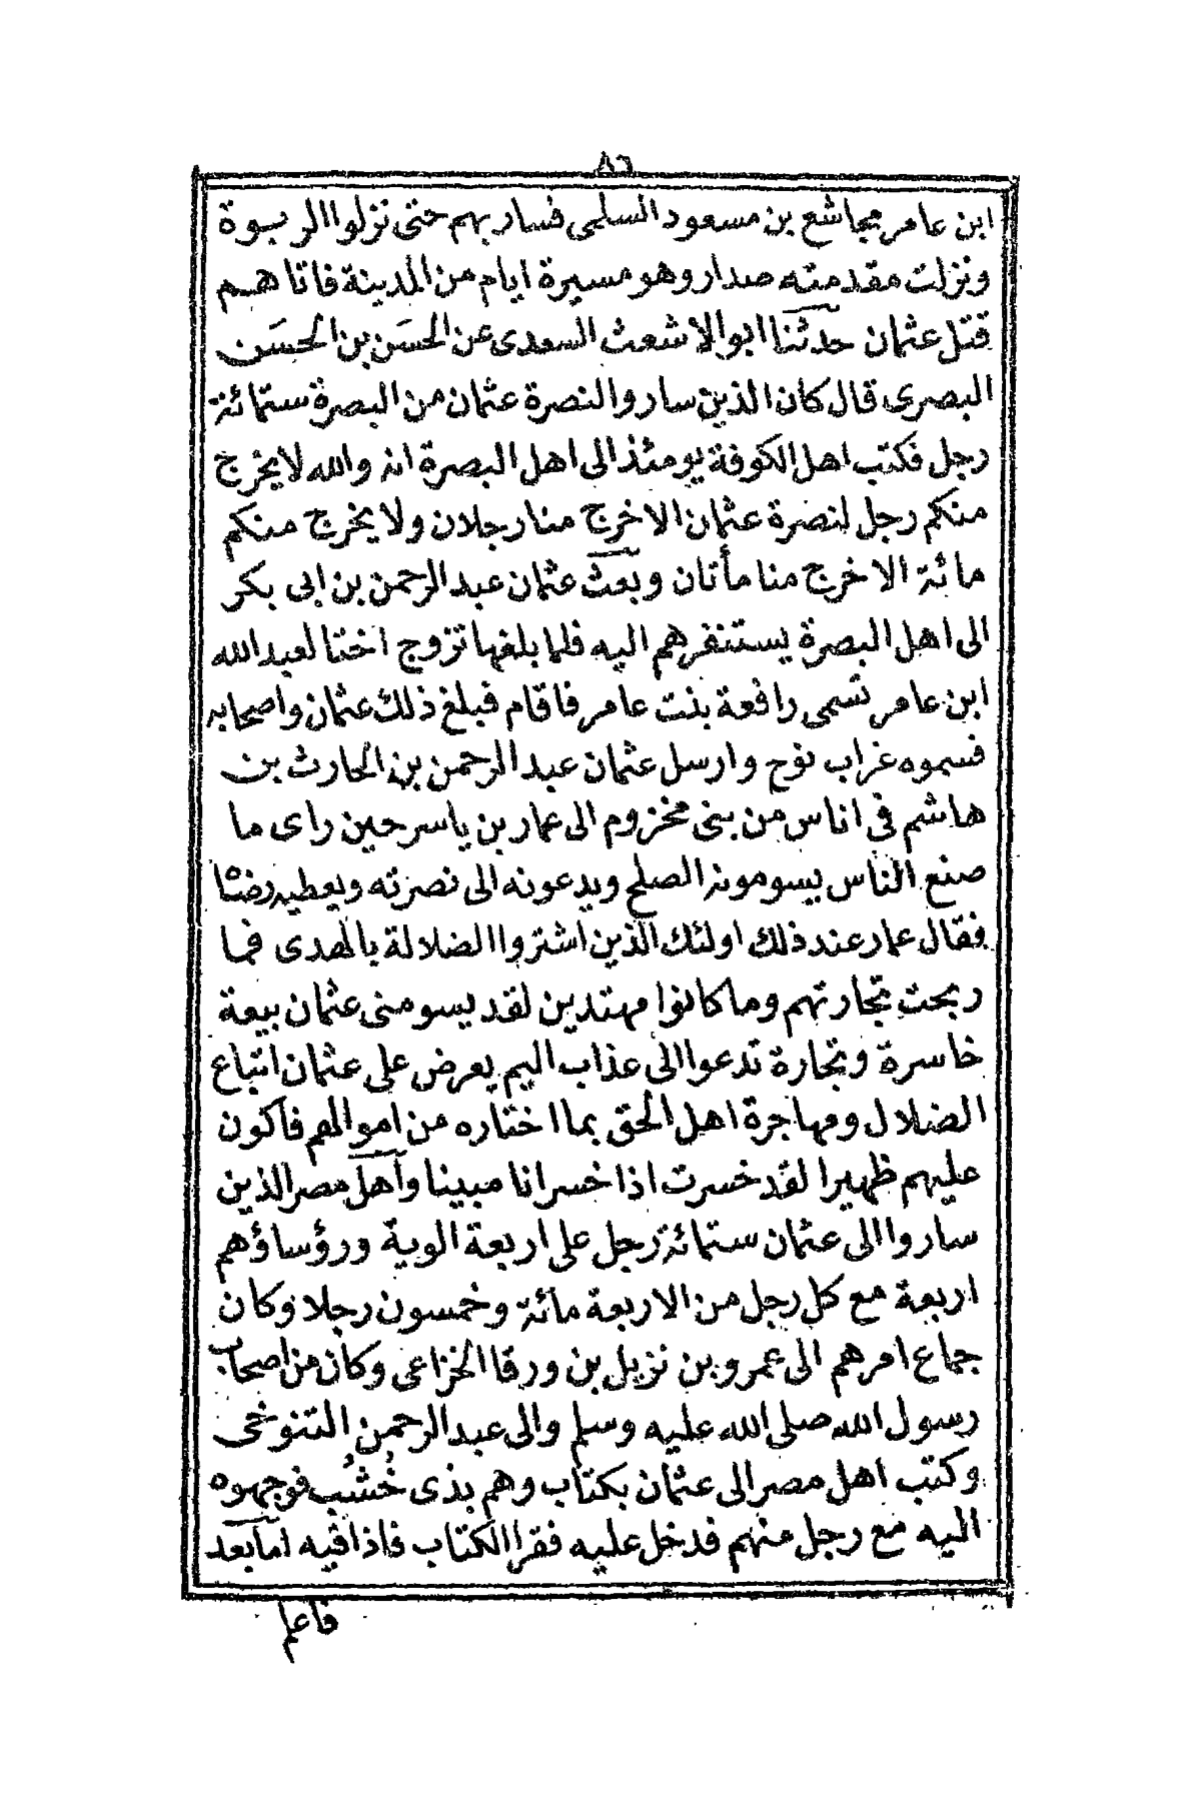 ٨٦
ابن عامر مجاشع بن مسعود السلمى فسار بهم حتى نزلوا الربوة
ونزلت مقدمته صدار وهو مسيرة ايام من المدينة فاتاهم
قتل عثمان حدثنا ابو الاشعث السعدى عن الحسَن بن الحسَن
البصرى قال كان الذين سار والنصرة عثمان من البصرة ستمائة
رجل فكتب اهل الكوفة يومئذ الى اهل البصرة انه والله لا يخرج
منكم رجل لنصرة عثمان الا خرج منا رجلان ولا يخرج منكم
مائة الا خرج منا مأتان وبعث عثمان عبد الرحمن بن ابى بكر
الى اهل البصرة يستنفرهم اليه فلما بلغها تزوج اختا لعبد الله
ابن عامر تسمى رافعة بنت عامر فاقام فبلغ ذلك عثمان واصحابه
فسموه غراب نوح وارسل عثمان عبد الرحمن بن الحارث بن
هاشم فى اناس من بنى مخزوم الى عمار بن ياسر حين راى ما
صنع الناس يسومونه الصلح ويدعونه الى نصرته ويعطيه رضًا
فقال عمار عند ذلك اولئك الذين اشتروا الضلالة بالهدى فما
ربحت تجارتهم وما كانوا مهتدين لقد يسومنى عثمان بيعة
خاسرة وتجارة تدعوا الى عذاب اليم يعرض على عثمان اتباع
الضلال ومهاجرة اهل الحق بما اختاره من اموالهم فاكون
عليهم ظهيرا لقد خسرت اذا خسرانا مبينا وأهل مصر الذين
ساروا الى عثمان ستمائة رجل على اربعة الوية ورؤساؤهم
اربعة مع كل رجل من الاربعة مائة وخمسون رجلا وكان
جماع امرهم الى عمرو بن نزيل بن ورقا الخزاعى وكان من اصحاب
رسول الله صلى الله عليه وسلم والى عبد الرحمن التنوخى
وكتب اهل مصر الى عثمان بكتاب وهم بذى خُشُب فوجهوه
اليه مع رجل منهم فدخل عليه فقرا الكتاب فاذا فيه اما بعد
فاعلم